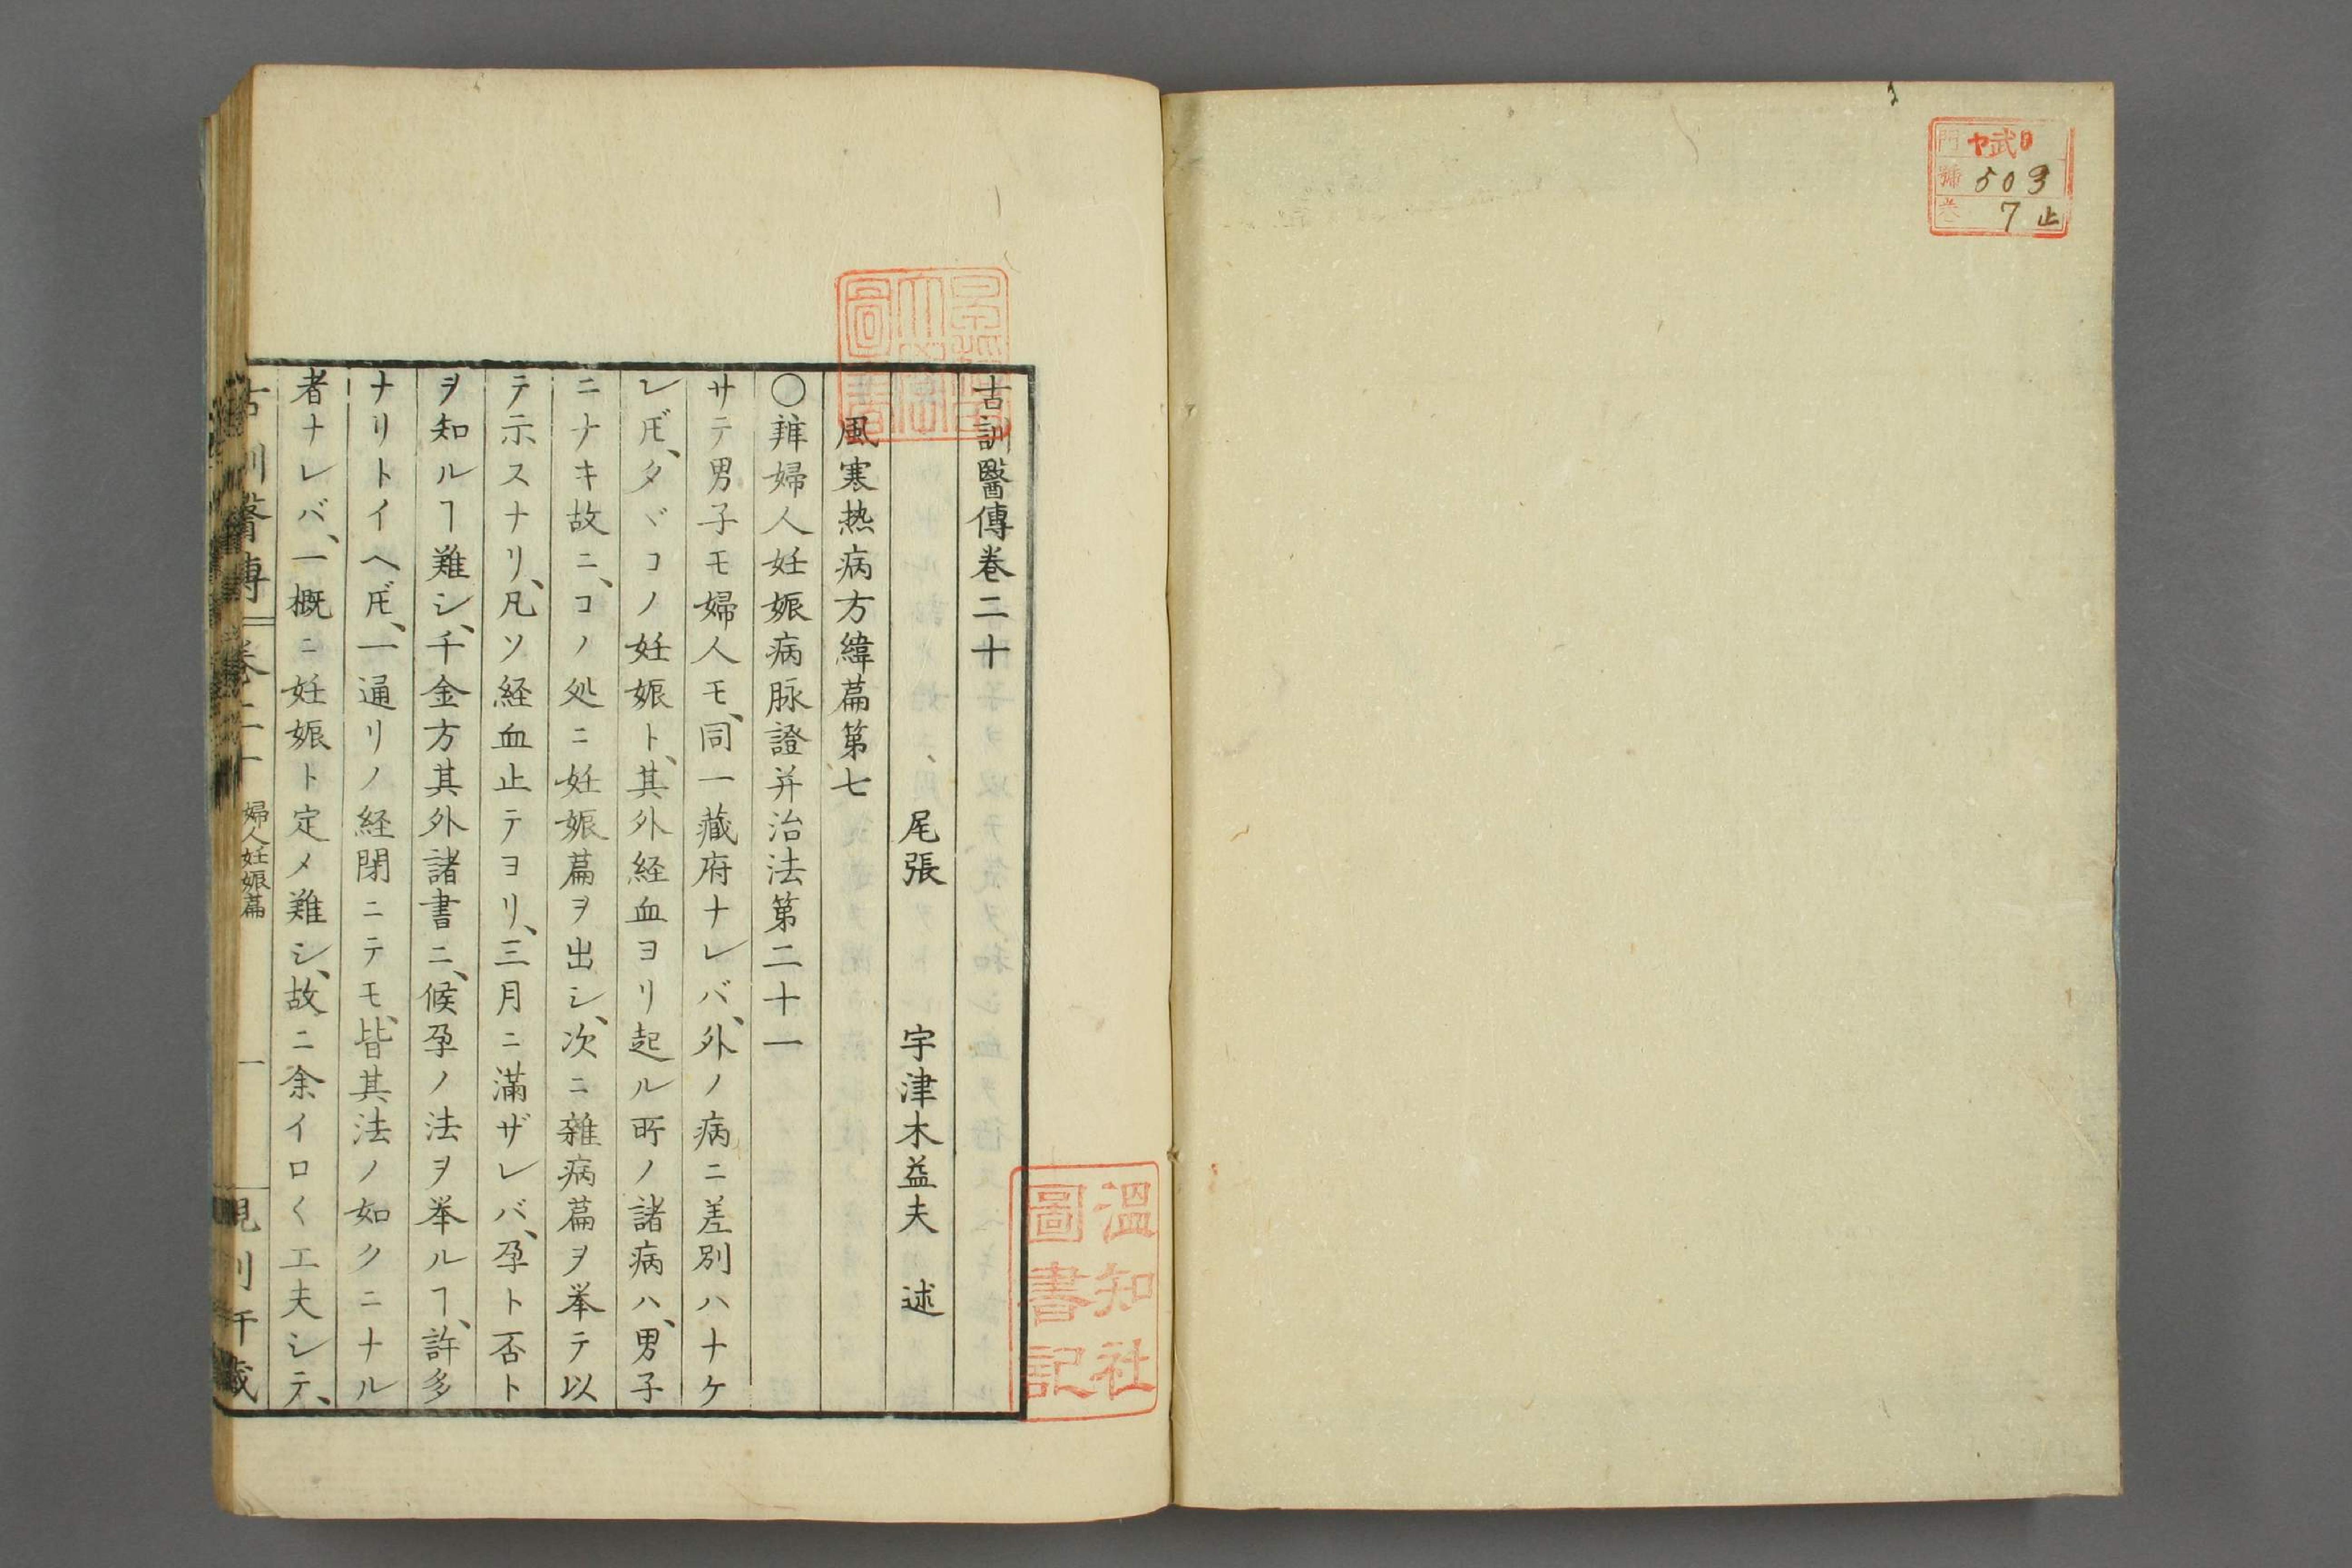 門 ヤ武日
號 503
巻 7止
古訓醫傳卷二十
尾張 宇津木益夫 述
風寒热病方緯篇第七
〇辨婦人妊娠病脉證并治法第二十一
サテ男子モ婦人モ、同一藏府ナレバ、外ノ病ニ差別ハナケ
レ𪜈、タヾコノ妊娠ト、其外経血ヨリ起ル所ノ諸病ハ、男子
ニナキ故ニ、コノ処ニ妊娠篇ヲ出シ、次ニ雜病篇ヲ挙テ以
テ示スナリ、凡ソ経血止テヨリ、三月ニ滿ザレバ、孕ト否ト
ヲ知ルヿ難シ、千金方其外諸書ニ、候孕ノ法ヲ挙ルヿ、許多
ナリトイヘ𪜈、一通リノ経閉ニテモ、皆其法ノ如クニナル
者ナレバ、一概ニ妊娠ト定メ難シ、故ニ余イロ〱工夫シテ、
古訓醫傳 卷二十 婦人妊娠篇 一
溫知社
圖書記